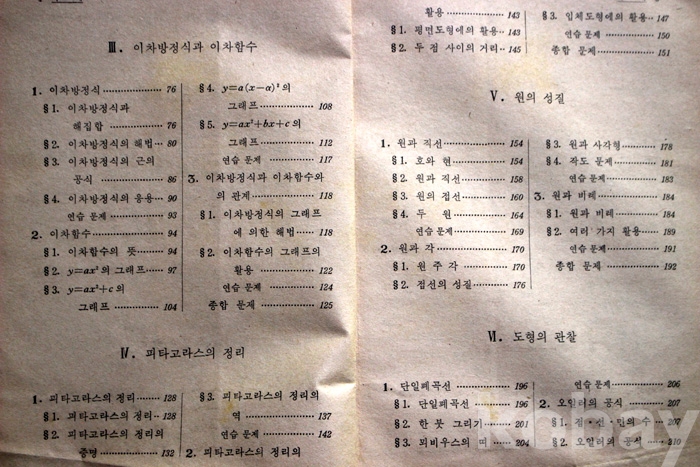 Ⅲ. 이차방정식과 이차함수
1. 이차방정식 ······ 76
§1. 이차방정식과
해집합 ······ 76
§2. 이차방정식의 해법 ·· 80
§3. 이차방정식의 근의
공식 ······ 86
§4. 이차방정식의 응용 ·· 90
연습 문제 ······ 93
2. 이차함수 ······ 94
§1. 이차함수의 뜻 ······ 94
§2. y=ax²의 그래프 ···· 97
§3. y=ax²+c의
그래프 ······ 104
§4. y=a(x-α)²의
그래프 ······ 108
§5. y=ax²+bx+c의
그래프 ······ 112
연습 문제 ······ 117
3. 이차방정식과 이차함수와
의 관계 ······ 118
§1. 이차방정식의 그래프
에 의한 해법 ···· 118
§2. 이차함수의 그래프의
활용 ······ 122
연습 문제 ······ 124
종합 문제 ······ 125
Ⅳ. 피타고라스의 정리
1. 피타고라스의 정리 ···· 128
§1. 피타고라스의 정리 ·· 128
§2. 피타고라스의 정리의
증명 ······ 132
§3. 피타고라스의 정리의
역 ······ 137
연습 문제 ······ 142
2. 피타고라스의 정리의
활용 ······ 143
§1. 평면도형에의 활용 ·· 143
§2. 두 점 사이의 거리 ·· 145
§3. 입체도형에의 활용 ·· 147
연습 문제 ······ 150
종합 문제 ······ 151
Ⅴ. 원의 성질
1. 원과 직선 ······ 154
§1. 호와 현 ······ 154
§2. 원과 직선 ······ 158
§3. 원의 접선 ······ 160
§4. 두 원 ······ 164
연습 문제 ······ 169
2. 원과 각 ······ 170
§1. 원 주 각 ······ 170
§2. 접선의 성질 ······ 176
§3. 원과 사각형 ······ 178
§4. 작도 문제 ······ 181
연습 문제 ······ 183
3. 원과 비례 ······ 184
§1. 원과 비례 ······ 184
§2. 여러 가지 활용 ···· 189
연습 문제 ······ 191
종합 문제 ······ 192
Ⅵ. 도형의 관찰
1. 단일폐곡선 ······ 196
§1. 단일폐곡선 ······ 196
§2. 한 붓 그리기 ······ 201
§3. 뫼비우스의 띠 ······ 204
연습 문제 ······ 206
2. 오일러의 공식 ······ 207
§1. 점·선·면의 수 ···· 207
§2. 오일러의 공식 ···· 210